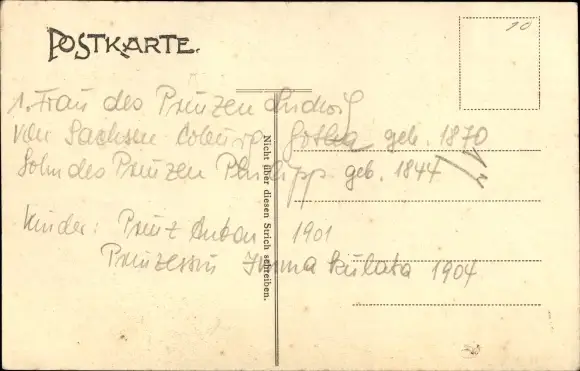 POSTKARTE.
10
1. Frau des Prinzen Ludwig
von Sachsen Coburg Gotha geb. 1870
Sohn des Prinzen Philipp geb. 1844
Kinder: Prinz Anton 1901
Prinzessin Immakulata 1904
Nicht über diesen Strich schreiben.